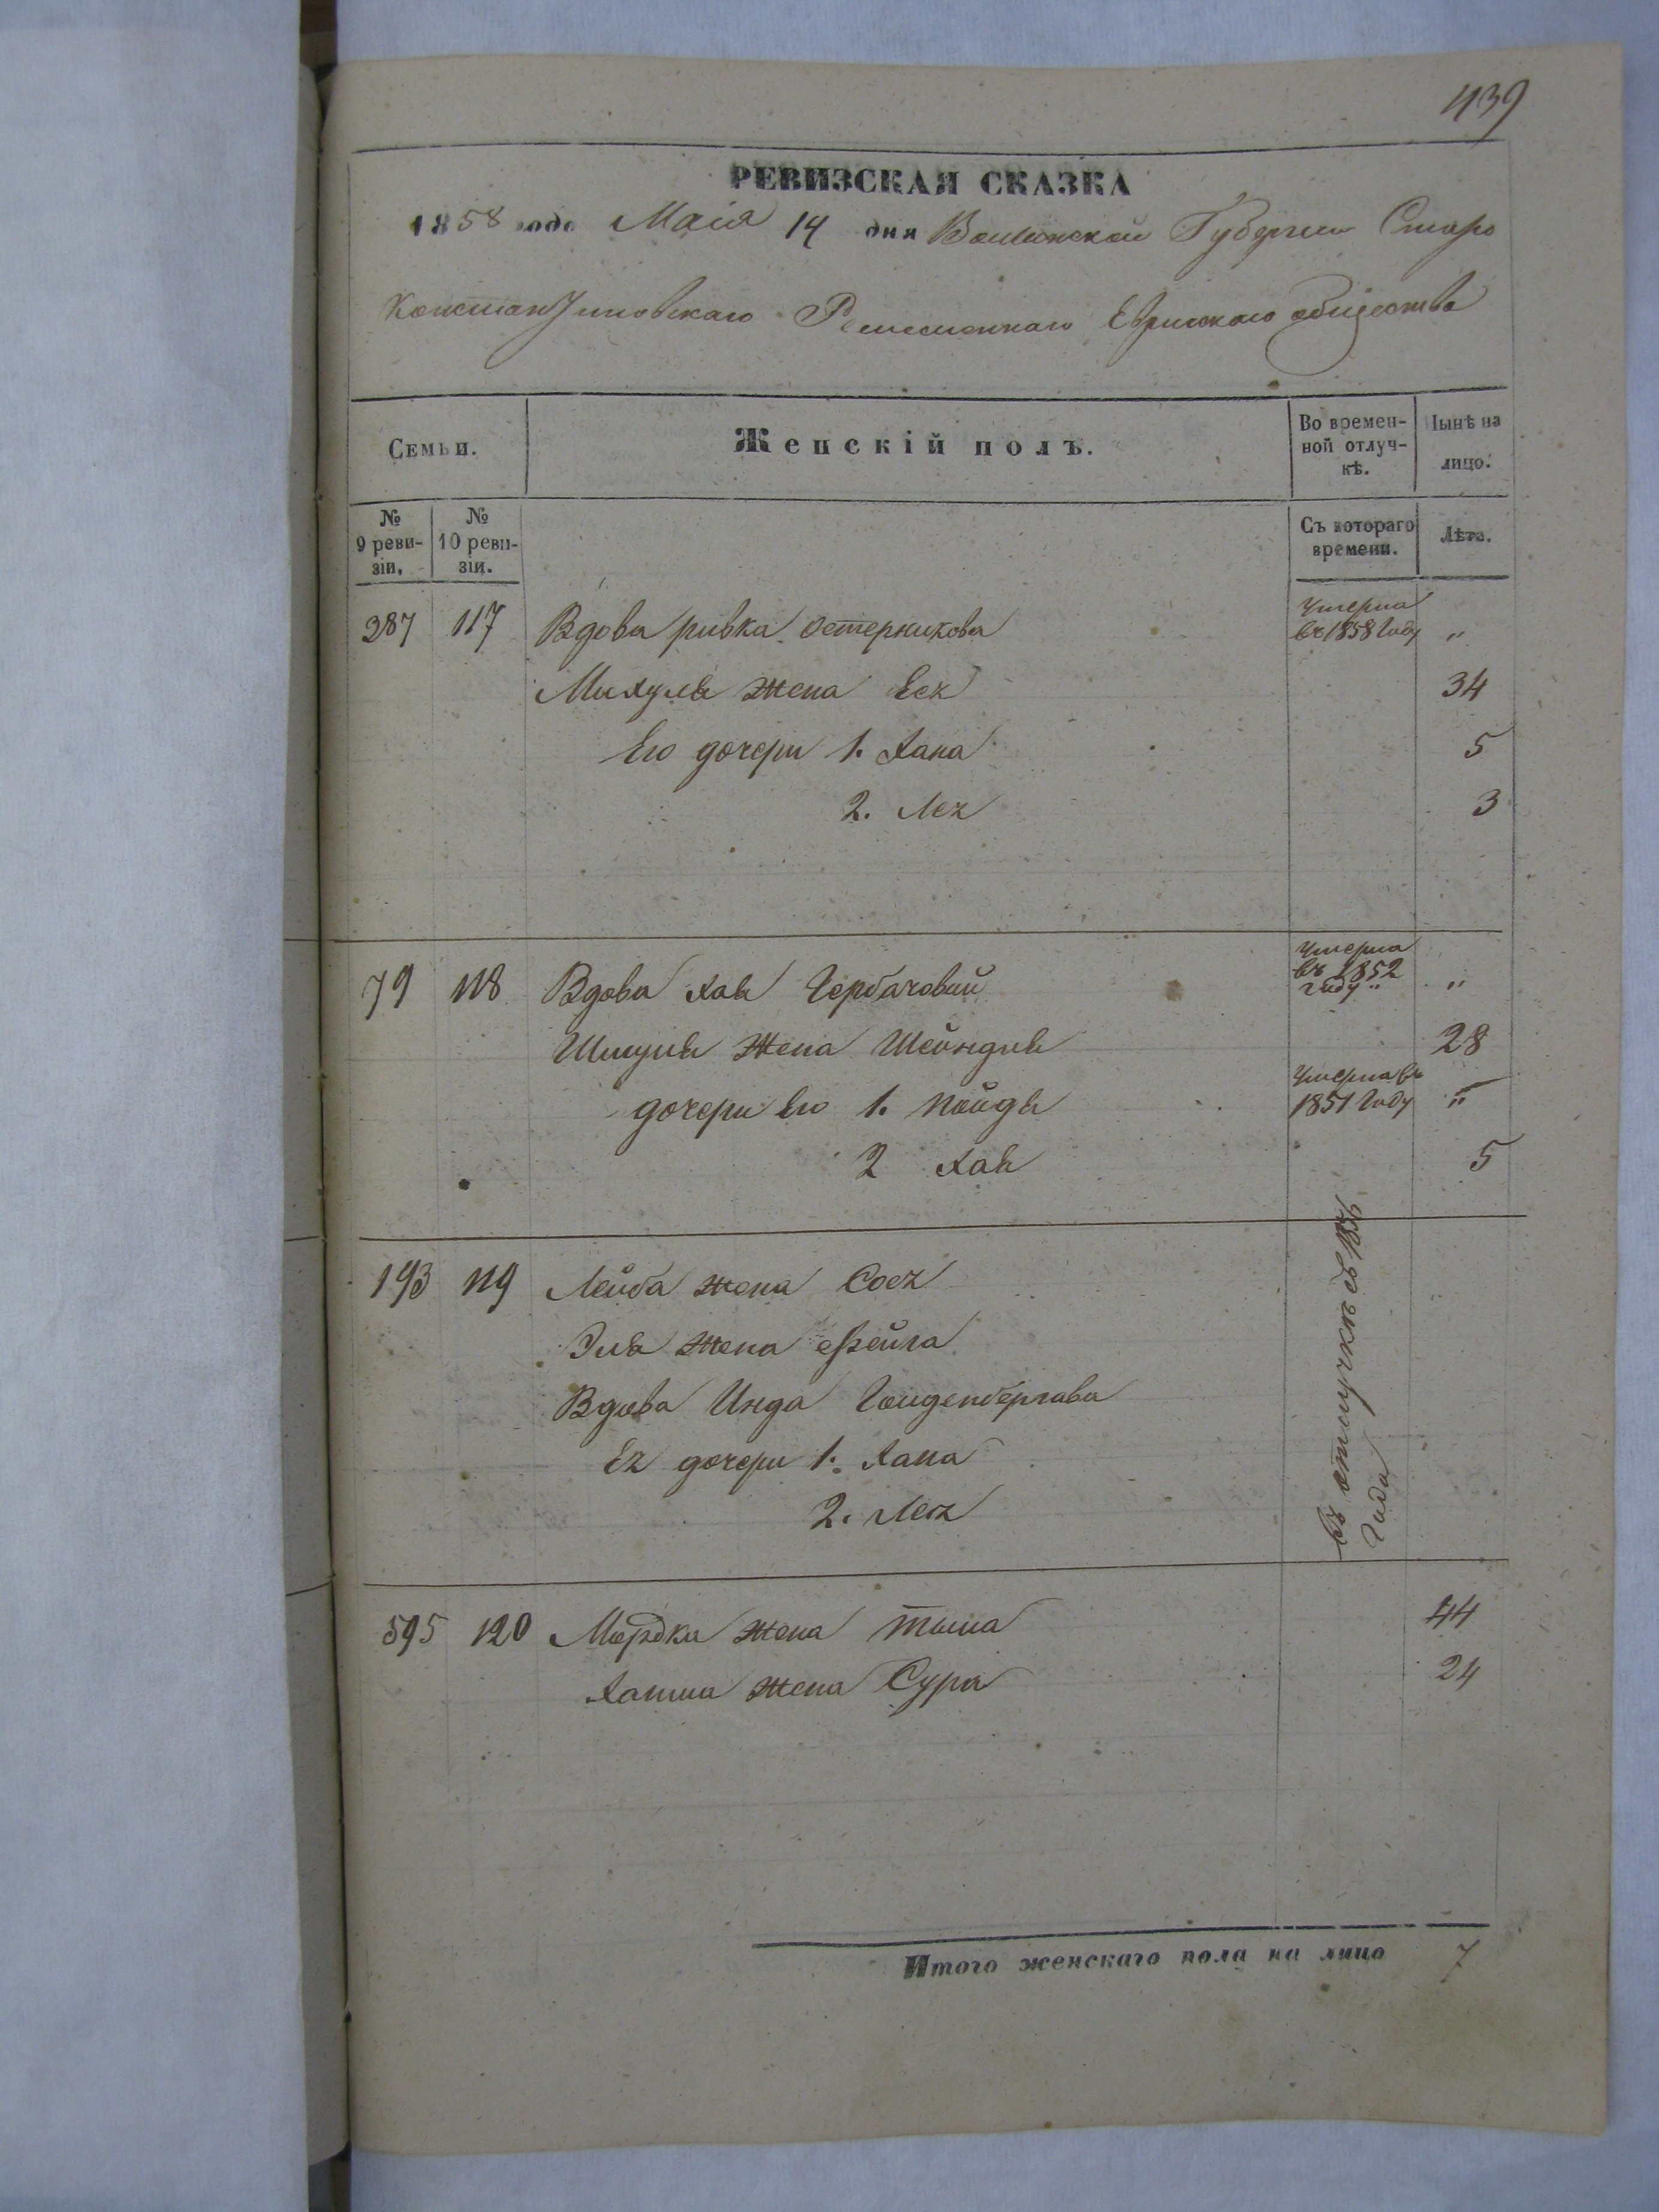 439
РЕВИЗСКАЯ СКАЗКА
1858 года Маія 14 дня Волынской Губерніи Старо
Константиновскаго Ремесленнаго Еврейскаго общества
Семьи. Женскій полъ. Во временной отлучкѣ. Нынѣ на лицо.
№ 9 ревизіи. № 10 ревизіи. Съ котораго времени. Лѣта.
287 117 Вдова ривка Остерникова Умерла въ 1858 Году "
жена Еся 34
Его дочери 1. Хана 5
2. Лея 3
79 118 Вдова Хая Умерла въ 1852 году "
Шмуля Жена Шейндля 28
дочери Его 1. Умерла въ 1851 Году "
2 Хая 5
193 119 Лейба жена Сося
жена Фейга
Вдова Инда
Ея дочери 1. Хана
2. Лея
въ отлучкѣ съ
Года
595 120 Мордки жена 44
жена Сура 24
Итого женскаго пола на лицо 7